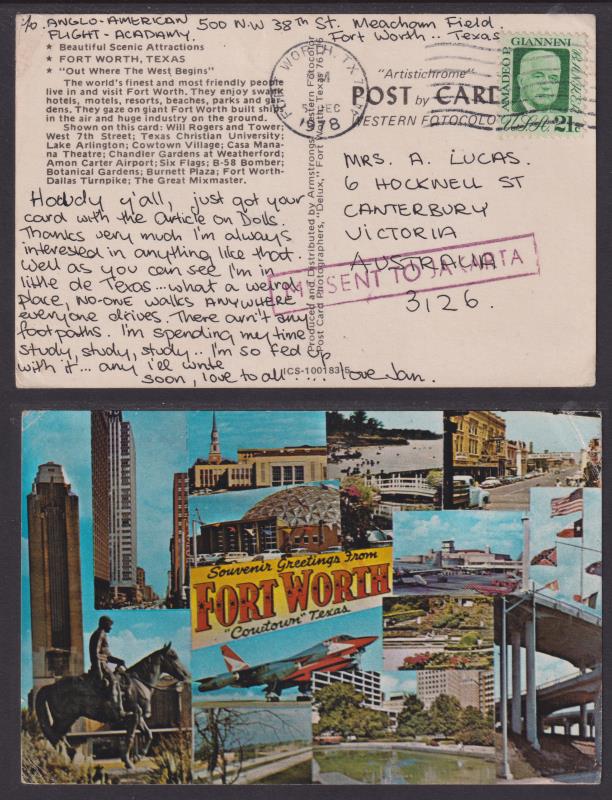 c/o ANGLO-AMERICAN 500 N.W 38th St. Meacham Field.
FLIGHT-ACADAMY. Fort Worth.. Texas
★ Beautiful Scenic Attractions
★ FORT WORTH, TEXAS
★ "Out Where The West Begins"
The world's finest and most friendly people
live in and visit Fort Worth. They enjoy swank
hotels, motels, resorts, beaches, parks and gar-
dens. They gaze on giant Fort Worth built ships
in the air and huge industry on the ground.
Shown on this card: Will Rogers and Tower;
West 7th Street; Texas Christian University;
Lake Arlington; Cowtown Village; Casa Mana-
na Theatre; Chandler Gardens at Weatherford;
Amon Carter Airport; Six Flags; B-58 Bomber;
Botanical Gardens; Burnett Plaza; Fort Worth-
Dallas Turnpike; The Great Mixmaster.
Howdy y'all, just got your
card with the article on Dolls.
Thanks very much I'm always
interested in anything like that.
Well as you can see I'm in
little de Texas... what a weird
place, NO-ONE walks ANYWHERE
everyone drives. There arn't any
footpaths. I'm spending my time
study, study, study.. I'm so fed up
with it... any I'll write
soon, love to all .... love Jan.
ICS-100183-5
Produced and Distributed by Armstrongs Western Fotocolor
Post Card Photographers, "Delux," Fort Worth, Texas 76116
FORT WORTH, TX
DEC
1978
"Artistichrome"
POST by CARD
WESTERN FOTOCOLOR
AMADEO P. GIANNINI
BANKER
U.S.A. 21c
MRS. A. LUCAS.
6 HOCKNELL ST
CANTERBURY
VICTORIA
AUSTRALIA
3126.
MISSENT TO JAKARTA
Souvenir Greetings From
FORT WORTH
"Cowtown" Texas